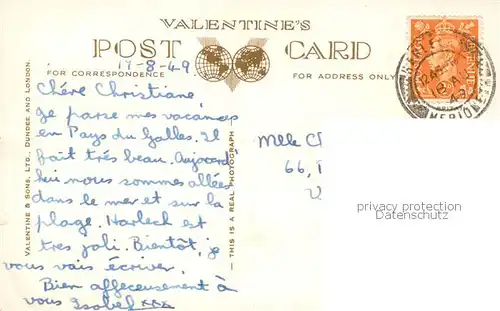 VALENTINE'S
POST CARD
17-8-49
FOR CORRESPONDENCE
FOR ADDRESS ONLY
Chère Christiane,
Je passe mes vacances
en Pays du Galles. Il
fait très beau. Aujourd'
hui nous sommes allées
dans le mer et sur la
plage. Harlech est
tres joli. Bientôt, je
vous vais écriver.
Bien affeceusement à
vous Isobel xxx
VALENTINE & SONS, LTD., DUNDEE AND LONDON.
— THIS IS A REAL PHOTOGRAPH
Melle C
66,
privacy protection
Datenschutz
MERIONE